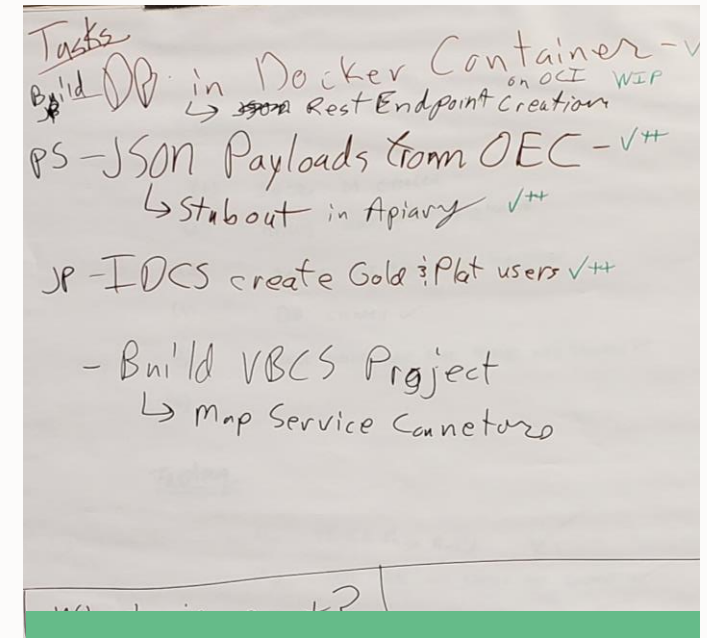 Tasks
Build DB in Docker Container - √
on OCI WIP
↳ Rest Endpoint Creation
PS - JSON Payloads from OEC - √++
↳ Stubout in Apiary √++
JP - IDCS create Gold & Plat users √++
- Build VBCS Project
↳ Map Service Connetors